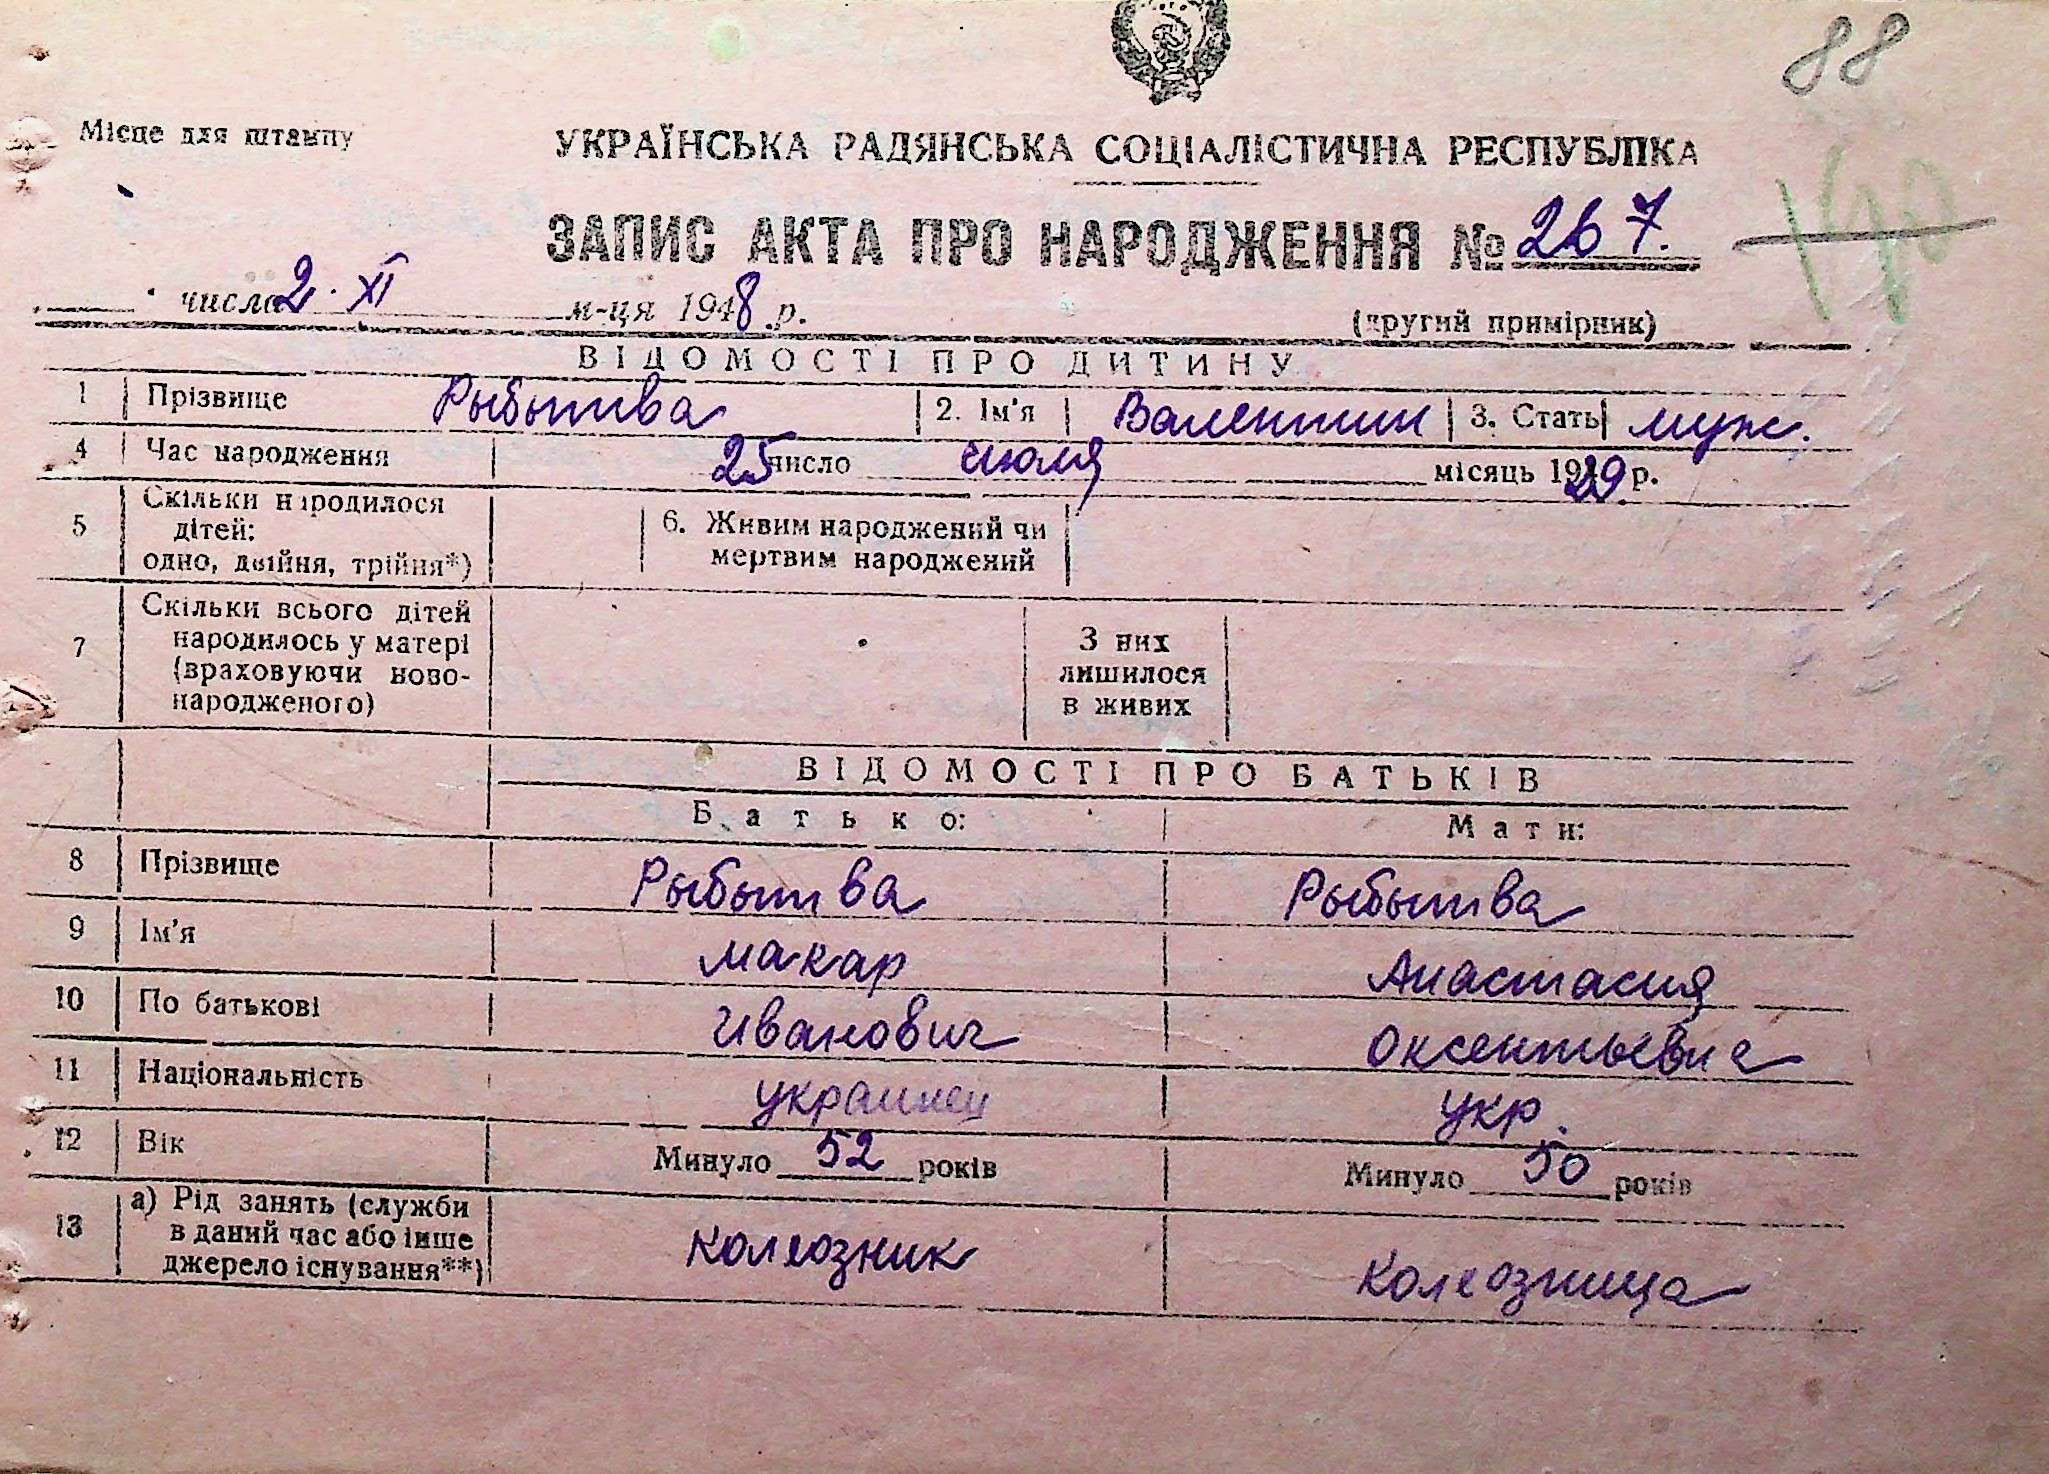 88
Місце для штампу
УКРАЇНСЬКА РАДЯНСЬКА СОЦІАЛІСТИЧНА РЕСПУБЛІКА
ЗАПИС АКТА ПРО НАРОДЖЕННЯ № 267.
числа 2. XI м-ця 1948 р.
(другий примірник)
ВІДОМОСТІ ПРО ДИТИНУ
1 Прізвище Рыбытва 2. Ім'я Валентин 3. Стать муж.
4 Час народження 25 число июля місяць 1929 р.
5 Скільки народилося дітей: одно, двійня, трійня*) 6. Живим народжений чи мертвим народжений
7 Скільки всього дітей народилось у матері (враховуючи ново-народженого) З них лишилося в живих
ВІДОМОСТІ ПРО БАТЬКІВ
Батько: Мати:
8 Прізвище Рыбытва Рыбытва
9 Ім'я Макар Анастасия
10 По батькові Иванович Оксентьевна
11 Національність украинец укр.
12 Вік Минуло 52 років Минуло 50 років
13 а) Рід занять (служби в даний час або інше джерело існування**) колхозник колхозница